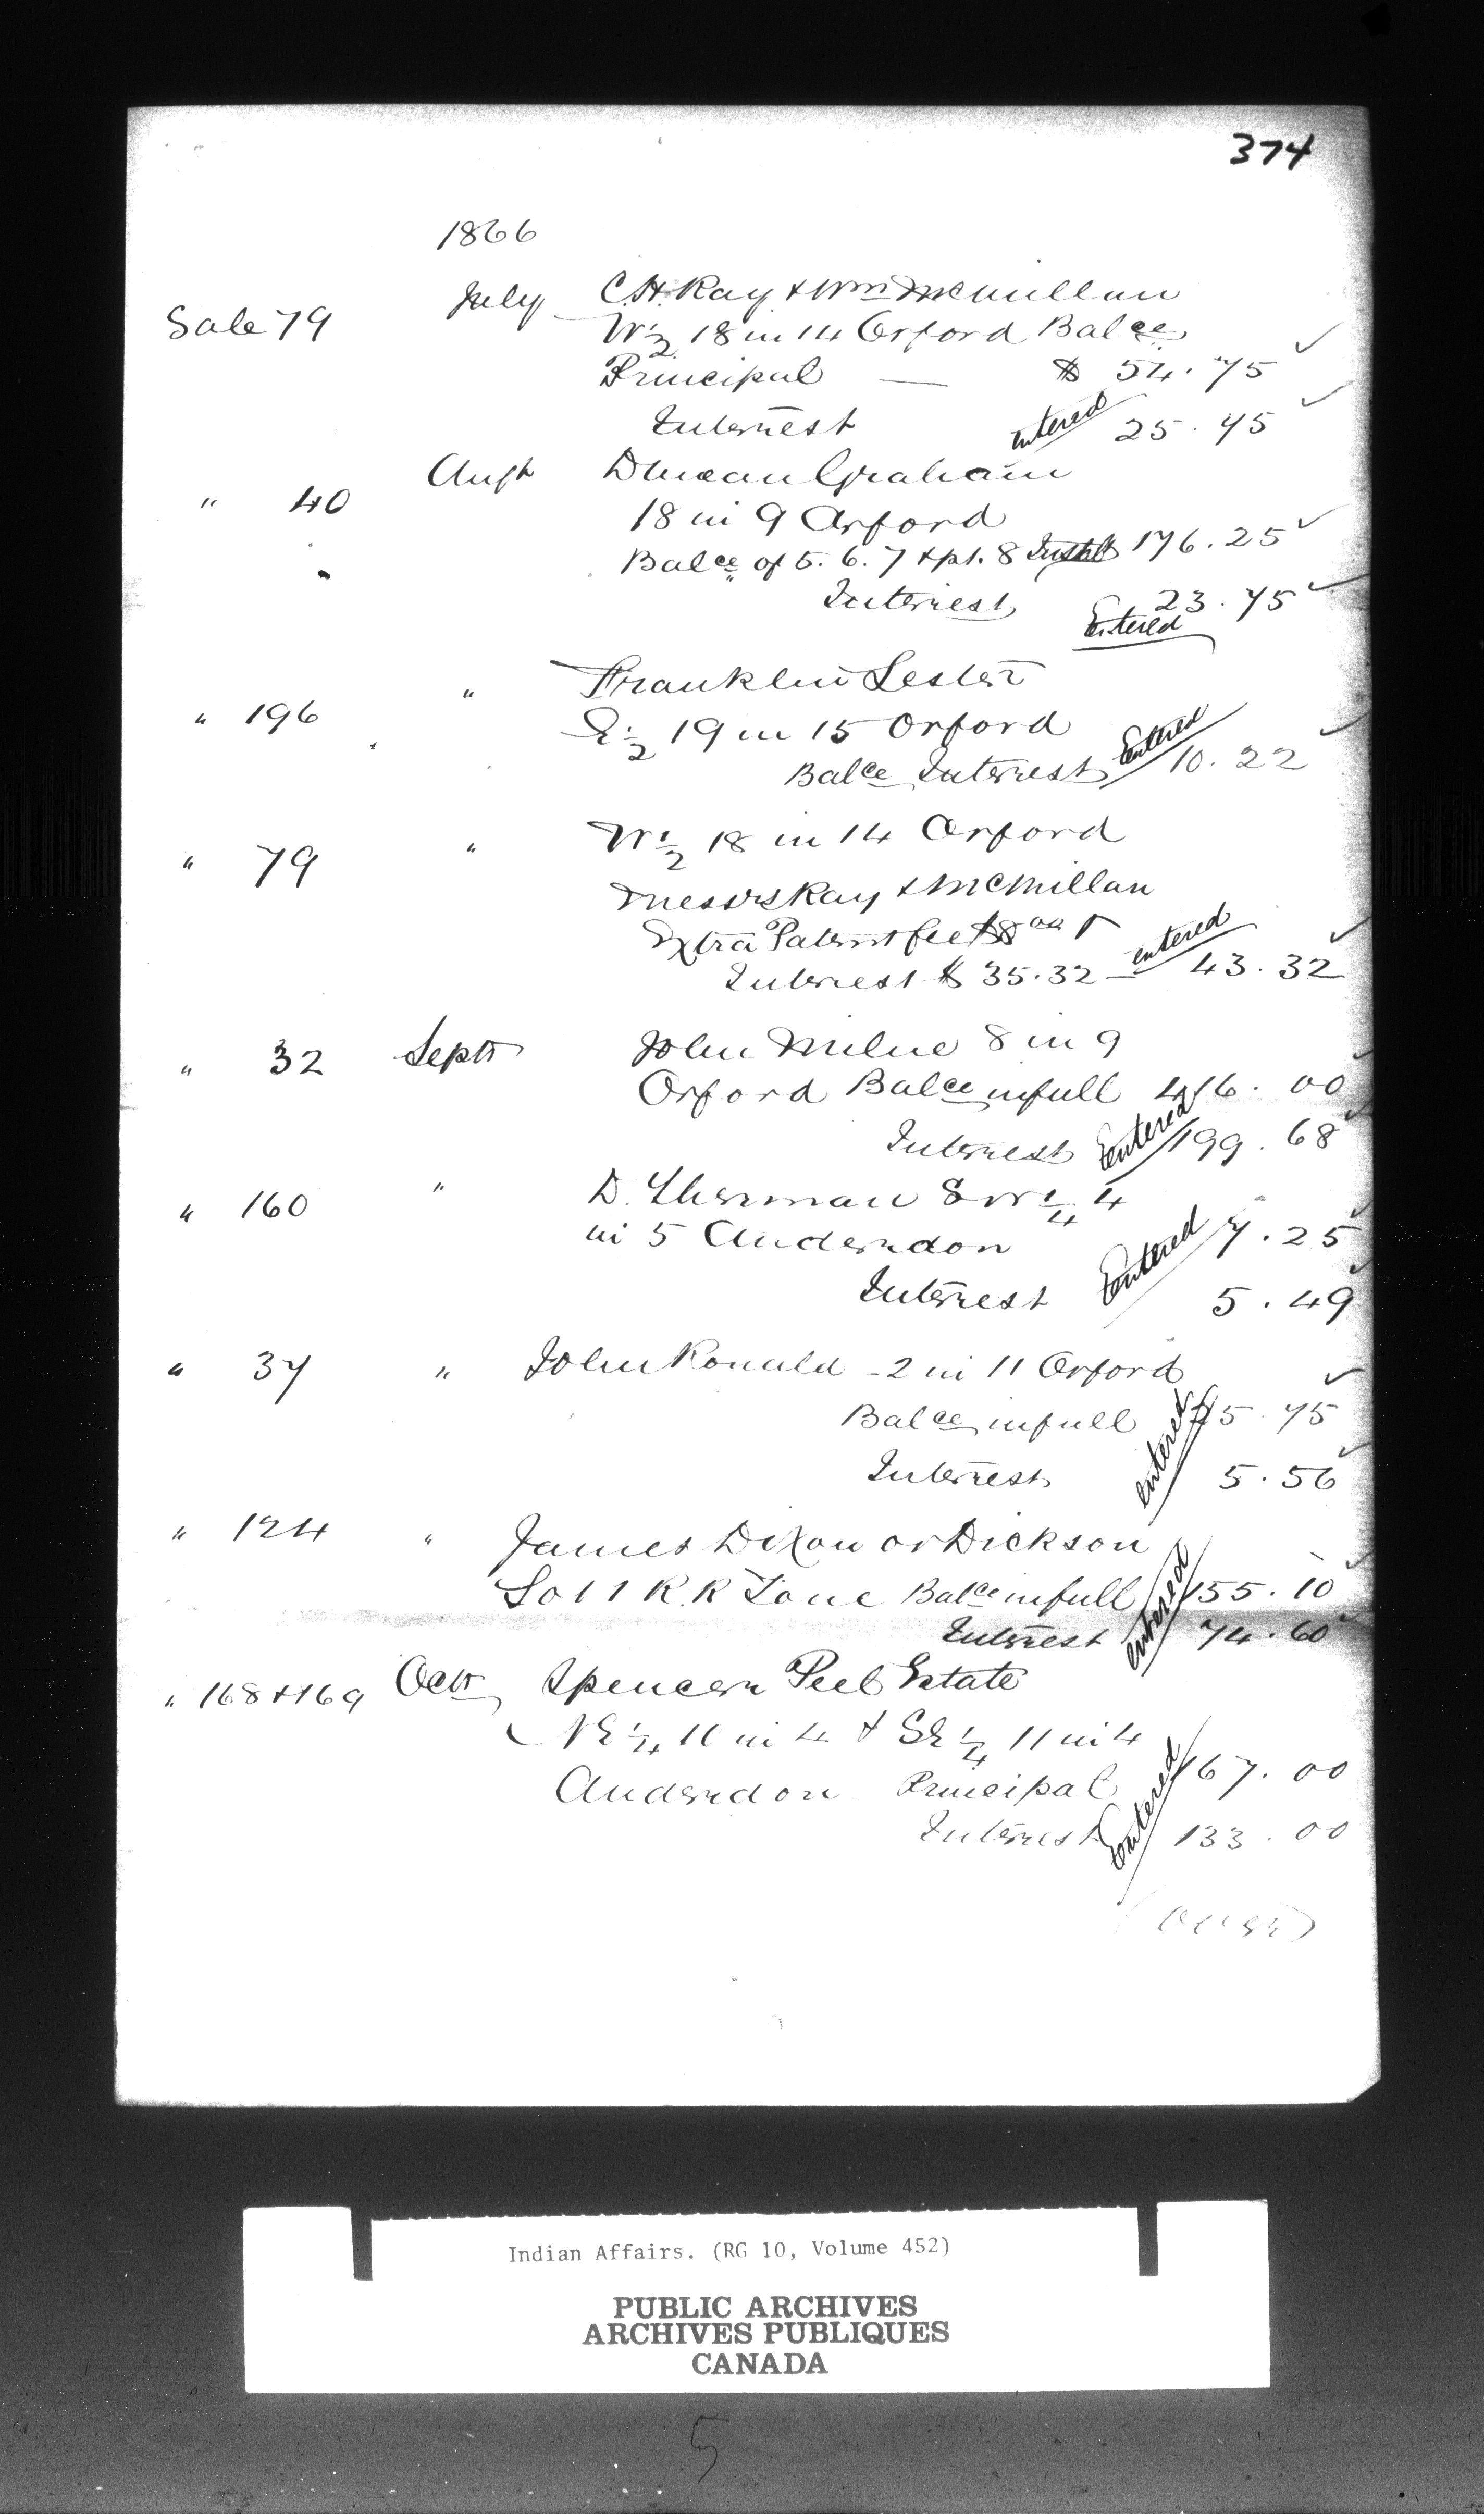 374
1866
Sale 79 July C.H. Ray & Wm McMillan
W 1/2 18 in 14 Orford Balce
Principal — $ 54.75
Interest entered 25.75
" 40 Augt Duncan Graham
18 in 9 Orford
Balce of 5. 6. 7 & pt. 8 Instal 176.25
Interest 23.75
Entered
" 196 " Franklin Lester
E 1/2 19 in 15 Orford
Balce Interest Entered 10.22
" 79 " W 1/2 18 in 14 Orford
Messrs Ray & McMillan
Extra Patent fee $8 00
Interest $ 35.32 — entered 43.32
" 32 Septr John Milne 8 in 9
Orford Balce in full 416.00
Interest Entered 199.68
" 160 " D. Sherman SW 1/4 4
in 5 Anderdon Entered 7.25
Interest 5.49
" 37 " John Ronald - 2 in 11 Orford
Balce in full entered 75
Interest 5.56
" 124 " James Dixon or Dickson
Lot 1 R.R Zone Balce in full entered 155.10
Interest 74.60
" 168 & 169 Octr Spencer Peel Estate
NE 1/4 11 in 4 & SE 1/4 11 in 4
Anderdon Principal Entered 167.00
Interest 133.00
(over)
Indian Affairs. (RG 10, Volume 452)
PUBLIC ARCHIVES
ARCHIVES PUBLIQUES
CANADA
5